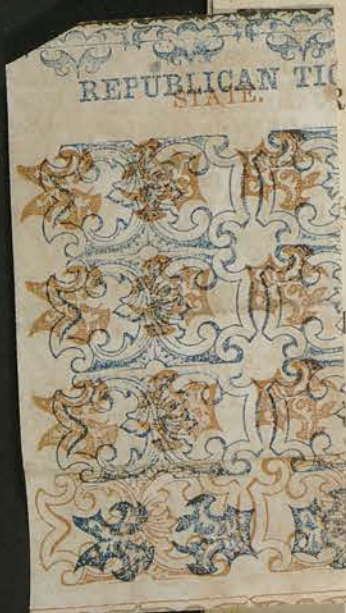 REPUBLICAN TIC
STATE.